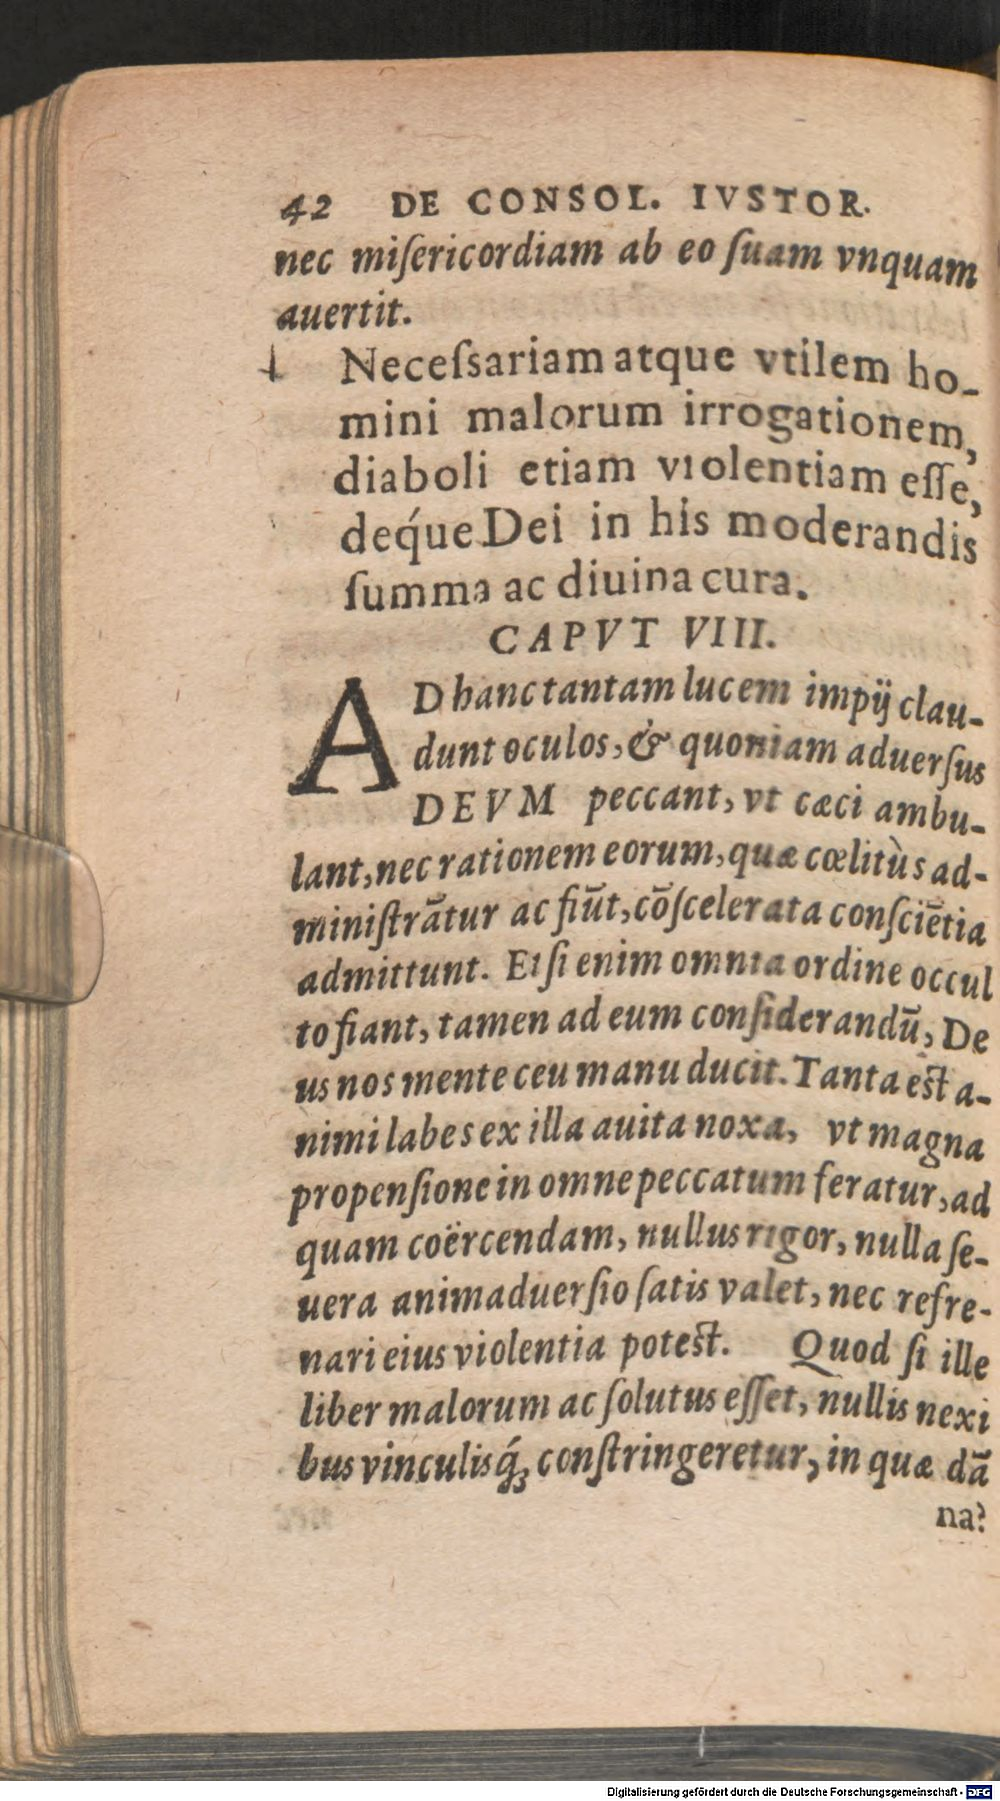 42 DE CONSOL. IVSTOR.
nec miſericordiam ab eo ſuam vnquam
auertit.
Neceſsariam atque vtilem ho-
mini malorum irrogationem,
diaboli etiam violentiam eſſe,
deq́ue Dei in his moderandis
ſumma ac diuina cura.
CAPVT VIII.
AD hanc tantam lucem impij clau-
dunt oculos, & quoniam aduerſus
DEVM peccant, vt cæci ambu-
lant, nec rationem eorum, quæ cœlitùs ad-
miniſtrātur ac fiūt, cōſcelerata conſciētia
admittunt. Etſi enim omnia ordine occul
to fiant, tamen ad eum conſiderandū, De
us nos mente ceu manu ducit. Tanta eſt a-
nimi labes ex illa auita noxa, vt magna
propenſione in omne peccatum feratur, ad
quam coërcendam, nullus rigor, nulla ſe-
uera animaduerſio ſatis valet, nec refre-
nari eius violentia poteſt. Quod ſi ille
liber malorum ac ſolutus eſſet, nullis nexi
bus vinculisq́; conſtringeretur, in quæ dā
na?
Digitalisierung gefördert durch die Deutsche Forschungsgemeinschaft - DFG